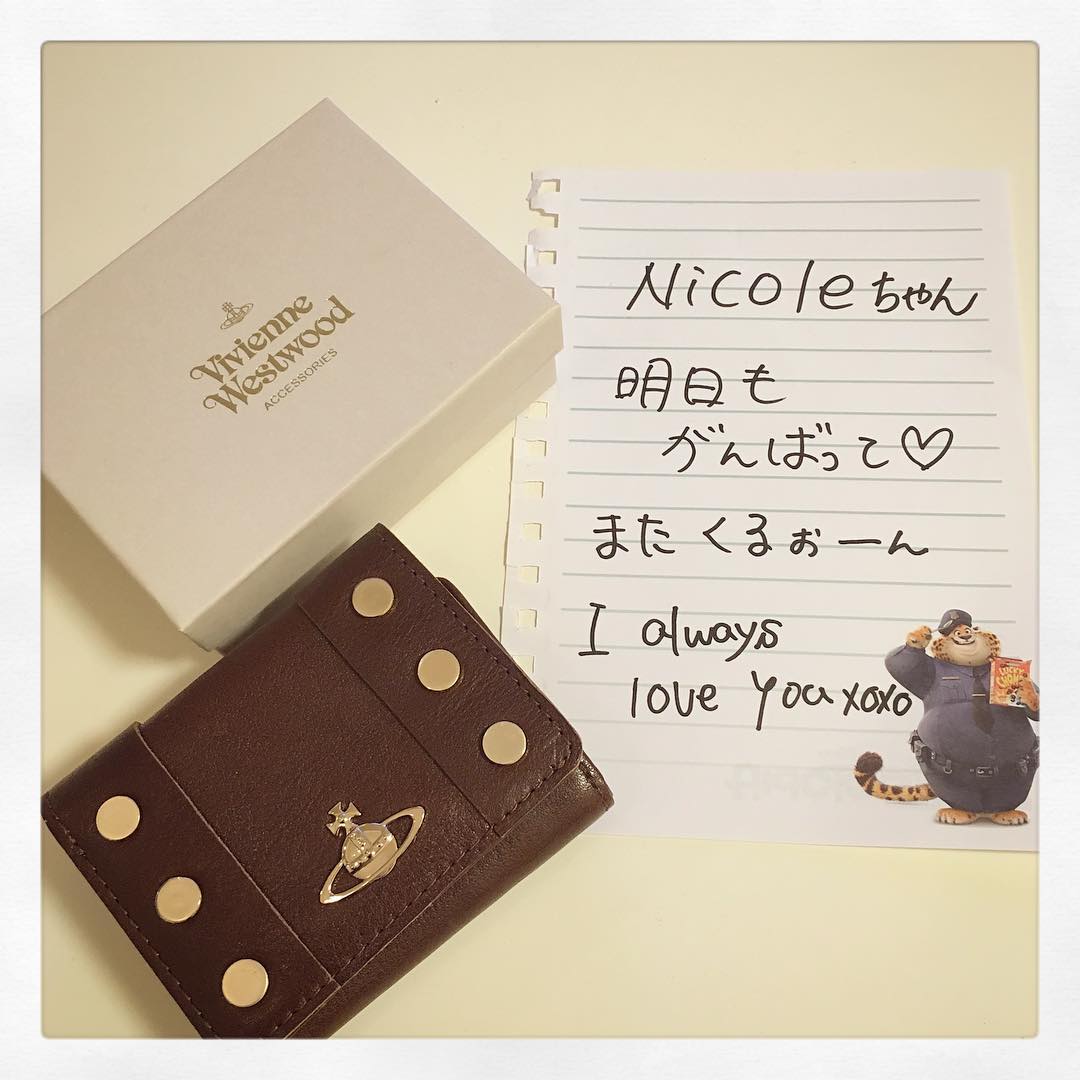 Vivienne
Westwood
ACCESSORIES
Nicoleちゃん
明日も
がんばって♡
またくるぉーん
I always
love you xoxo
LUCKY
CHOMPS